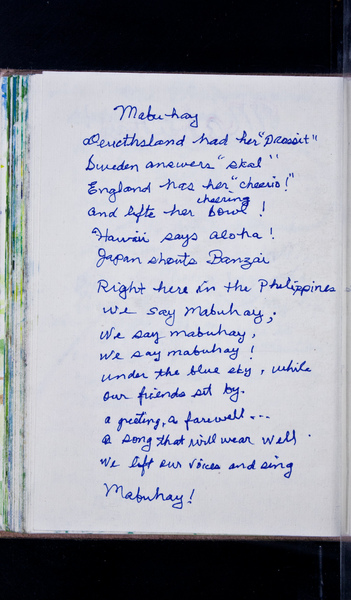 Mabu-hay
Deuethsland had her "Prosoit"
Sweden answers "skol"
England has her "cheerio!"
cheering
and lifts her bowl !
Hawaii says aloha !
Japan shouts Banzai
Right here in the Philippines
we say Mabuhay,
we say mabuhay,
we say mabuhay !
under the blue sky, while
our friends sit by.
a greeting, a farewell...
a song that will wear well.
we lift our voices and sing
Mabuhay!